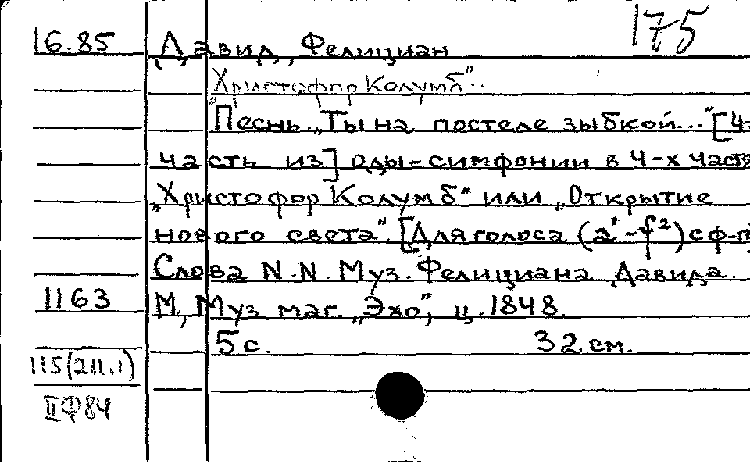 175
16.85 Давид, Фелициан
"Христофор Колумб"..
"Песнь „Ты на постеле зыбкой..." [4-
часть из] оды-симфонии в 4-х частя
„Христофор Колумб" или „Открытие
нового света". [Для голоса (a¹-f²) с ф-п
Слова N.N. Муз. Фелициана Давида
1163 М, Муз маг. „Эхо", ц. 1848.
5 с. 32 см.
115(211.1)
IIФ84